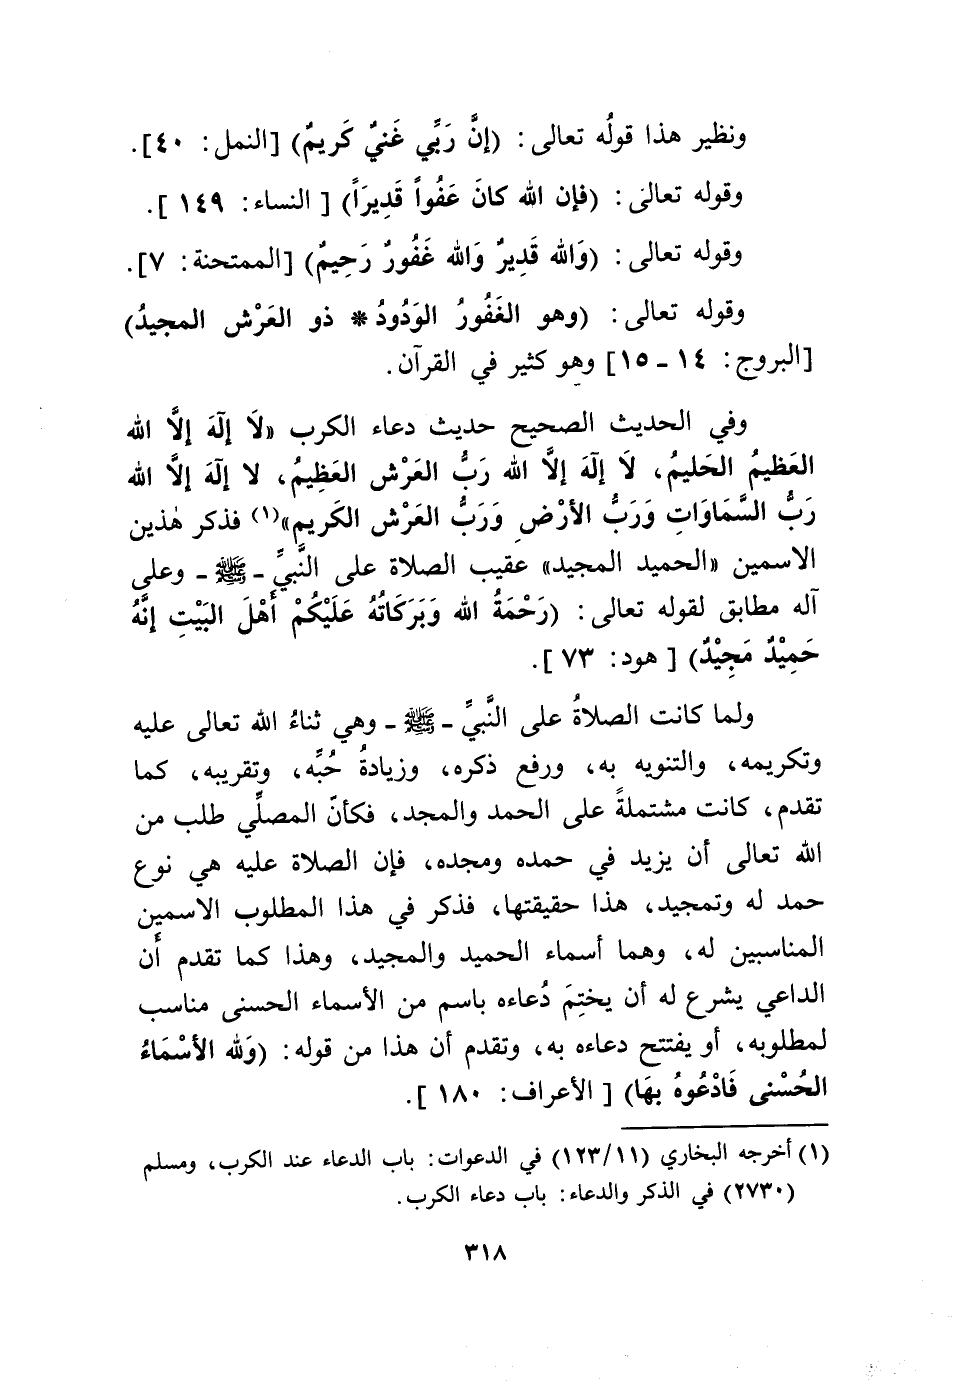 ونظير هذا قولُه تعالى: (إنَّ رَبِّي غَنيٌ كَريمٌ) [النمل: ٤٠].
وقوله تعالىَ: (فإن الله كانَ عَفُواً قَدِيرَاً) [ النساء: ١٤٩ ].
وقوله تعالى: (وَالله قَدِيرٌ وَالله غَفُورٌ رَحِيمٌ) [الممتحنة: ٧].
وقوله تعالى: (وهو الغَفُورُ الوَدُودُ* ذو العَرْش المجيدُ)
[البروج: ١٤ ـ ١٥] وهو كثير في القرآن.
وفي الحديث الصحيح حديث دعاء الكرب «لَا إلَهَ إلاَّ الله
العَظيمُ الحَليمُ، لَا إلَهَ إلاَّ الله رَبُّ العَرْش العَظِيمُ، لا إلَهَ إلاَّ الله
رَبُّ السَّمَاوَاتِ وَرَبُّ الأرْضِ وَرَبُّ العَرْش الكَريم»(١) فذكر هٰذين
الاسمين «الحميد المجيد» عقيب الصلاة على النَّبيِّ ـ ﷺ ـ وعلى
آله مطابق لقوله تعالى: (رَحْمَةُ الله وَبَرَكَاتُهُ عَلَيْكُمْ أَهْلَ البَيْتِ إنَّهُ
حَمِيْدٌ مَجِيْدٌ) [ هود: ٧٣ ].
ولما كانت الصلاةُ على النَّبيِّ ـ ﷺ ـ وهي ثناءُ الله تعالى عليه
وتكريمه، والتنويه به، ورفع ذكره، وزيادةُ حُبِّه، وتقريبه، كما
تقدم، كانت مشتملةً على الحمد والمجد، فكأنّ المصلِّي طلب من
الله تعالى أن يزيد في حمده ومجده، فإن الصلاة عليه هي نوع
حمد له وتمجيد، هذا حقيقتها، فذكر في هذا المطلوب الاسمين
المناسبين له، وهما أسماء الحميد والمجيد، وهذا كما تقدم أن
الداعي يشرع له أن يختِمَ دُعاءه باسم من الأسماء الحسنى مناسب
لمطلوبه، أو يفتتح دعاءه به، وتقدم أن هذا من قوله: (وَلله الأسْمَاءُ
الحُسْنى فَادْعُوهُ بهَا) [ الأعراف: ١٨٠ ].
(١) أخرجه البخاري (١٢٣/١١) في الدعوات: باب الدعاء عند الكرب، ومسلم
(٢٧٣٠) في الذكر والدعاء: باب دعاء الكرب.
٣١٨